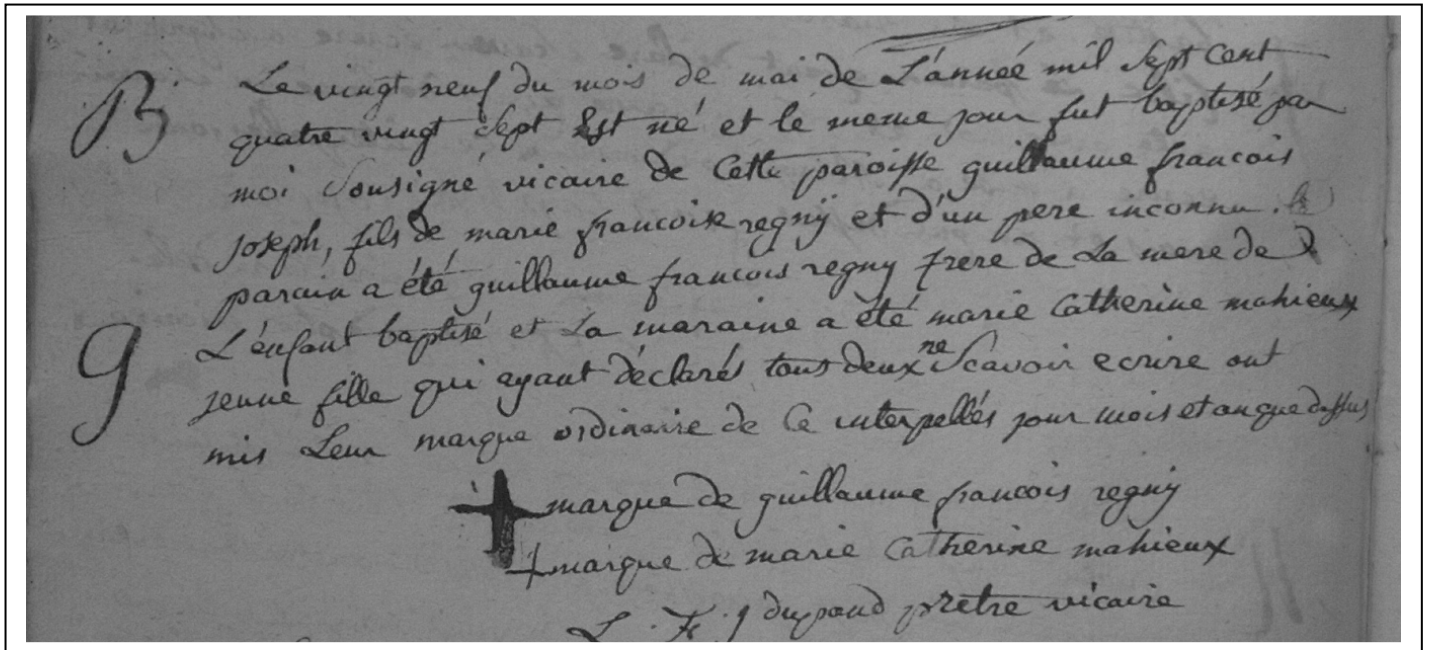 B
Le vingt neuf du mois de mai de L'année mil sept cent
quatre vingt sept Est né et le meme jour fut baptisé par
moi Sousigné vicaire de Cette paroisse guillaume francois
joseph, fils de marie francoise regnÿ et d'un pere inconnu. le
parain a été guillaume francois regny frere de La mere de
G
L'enfant baptisé et La maraine a été marie Catherine mahieux
jeune fille qui ayant déclarés tous deux ne Scavoir ecrire ont
mis Leur marque ordinaire de Ce interpellés jour mois et an que dessus
marque de guillaume francois regny
marque de marie Catherine mahieux
L. F. J dupond prêtre vicaire